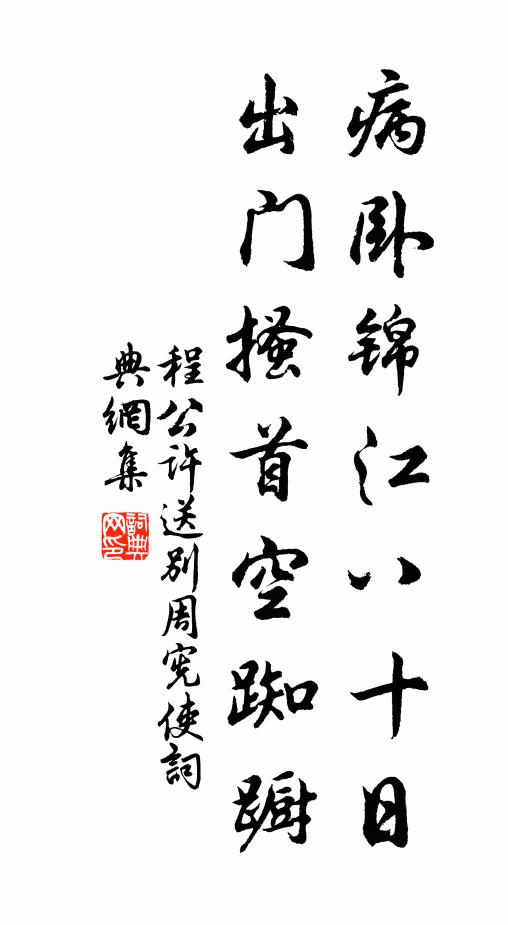 病卧锦江八十日
出门搔首空踟蹰
程公许送别周宪使詞
典網集
詞典
网印